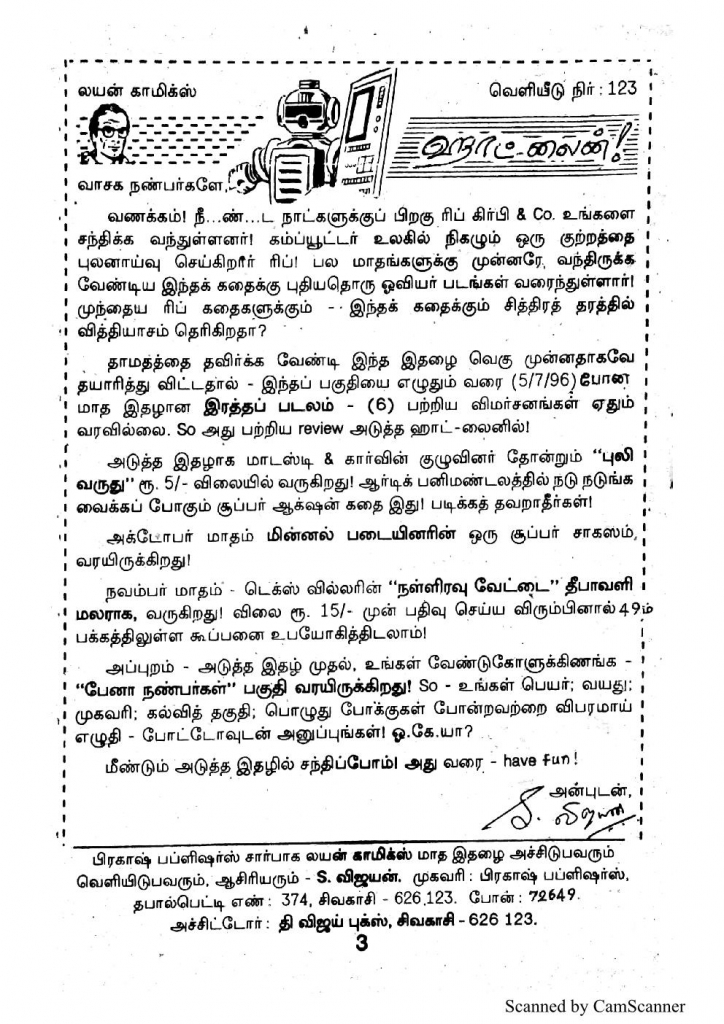 லயன் காமிக்ஸ்
வெளியீடு நிர் : 123
ஹாட்-லைன்!
வாசக நண்பர்களே,
வணக்கம்! நீ...ண்...ட நாட்களுக்குப் பிறகு ரிப் கிர்பி & Co. உங்களை
சந்திக்க வந்துள்ளனர்! கம்ப்யூட்டர் உலகில் நிகழும் ஒரு குற்றத்தை
புலனாய்வு செய்கிறார் ரிப்! பல மாதங்களுக்கு முன்னரே வந்திருக்க
வேண்டிய இந்தக் கதைக்கு புதியதொரு ஓவியர் படங்கள் வரைந்துள்ளார்!
முந்தைய ரிப் கதைகளுக்கும் - இந்தக் கதைக்கும் சித்திரத் தரத்தில்
வித்தியாசம் தெரிகிறதா?
தாமதத்தை தவிர்க்க வேண்டி இந்த இதழை வெகு முன்னதாகவே
தயாரித்து விட்டதால் - இந்தப் பகுதியை எழுதும் வரை (5/7/96) போன
மாத இதழான இரத்தப் படலம் - (6) பற்றிய விமர்சனங்கள் ஏதும்
வரவில்லை. So அது பற்றிய review அடுத்த ஹாட்-லைனில்!
அடுத்த இதழாக மாடஸ்டி & கார்வின் குழுவினர் தோன்றும் "புலி
வருது" ரூ. 5/- விலையில் வருகிறது! ஆர்டிக் பனிமண்டலத்தில் நடு நடுங்க
வைக்கப் போகும் சூப்பர் ஆக்‌ஷன் கதை இது! படிக்கத் தவறாதீர்கள்!
அக்டோபர் மாதம் மின்னல் படையினரின் ஒரு சூப்பர் சாகஸம்
வரயிருக்கிறது!
நவம்பர் மாதம் - டெக்ஸ் வில்லரின் "நள்ளிரவு வேட்டை" தீபாவளி
மலராக, வருகிறது! விலை ரூ. 15/- முன் பதிவு செய்ய விரும்பினால் 49ம்
பக்கத்திலுள்ள கூப்பனை உபயோகித்திடலாம்!
அப்புறம் - அடுத்த இதழ் முதல், உங்கள் வேண்டுகோளுக்கிணங்க -
"பேனா நண்பர்கள்" பகுதி வரயிருக்கிறது! So - உங்கள் பெயர்; வயது;
முகவரி; கல்வித் தகுதி; பொழுது போக்குகள் போன்றவற்றை விபரமாய்
எழுதி - போட்டோவுடன் அனுப்புங்கள்! ஓ.கே.யா?
மீண்டும் அடுத்த இதழில் சந்திப்போம்! அது வரை - have fun!
அன்புடன்,
S. விஜயன்
பிரகாஷ் பப்ளிஷர்ஸ் சார்பாக லயன் காமிக்ஸ் மாத இதழை அச்சிடுபவரும்
வெளியிடுபவரும், ஆசிரியரும் - S. விஜயன். முகவரி : பிரகாஷ் பப்ளிஷர்ஸ்,
தபால்பெட்டி எண் : 374, சிவகாசி - 626 123. போன் : 72649.
அச்சிட்டோர் : தி விஜய் புக்ஸ், சிவகாசி - 626 123.
3
Scanned by CamScanner